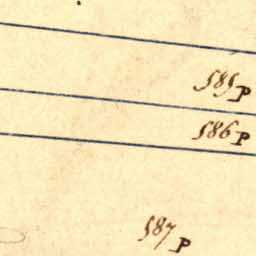 585 P
586 P
587 P